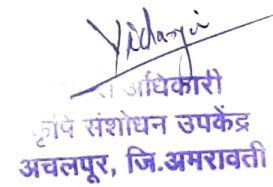 अधिकारी
कृषि संशोधन उपकेंद्र
अचलपूर, जि.अमरावती